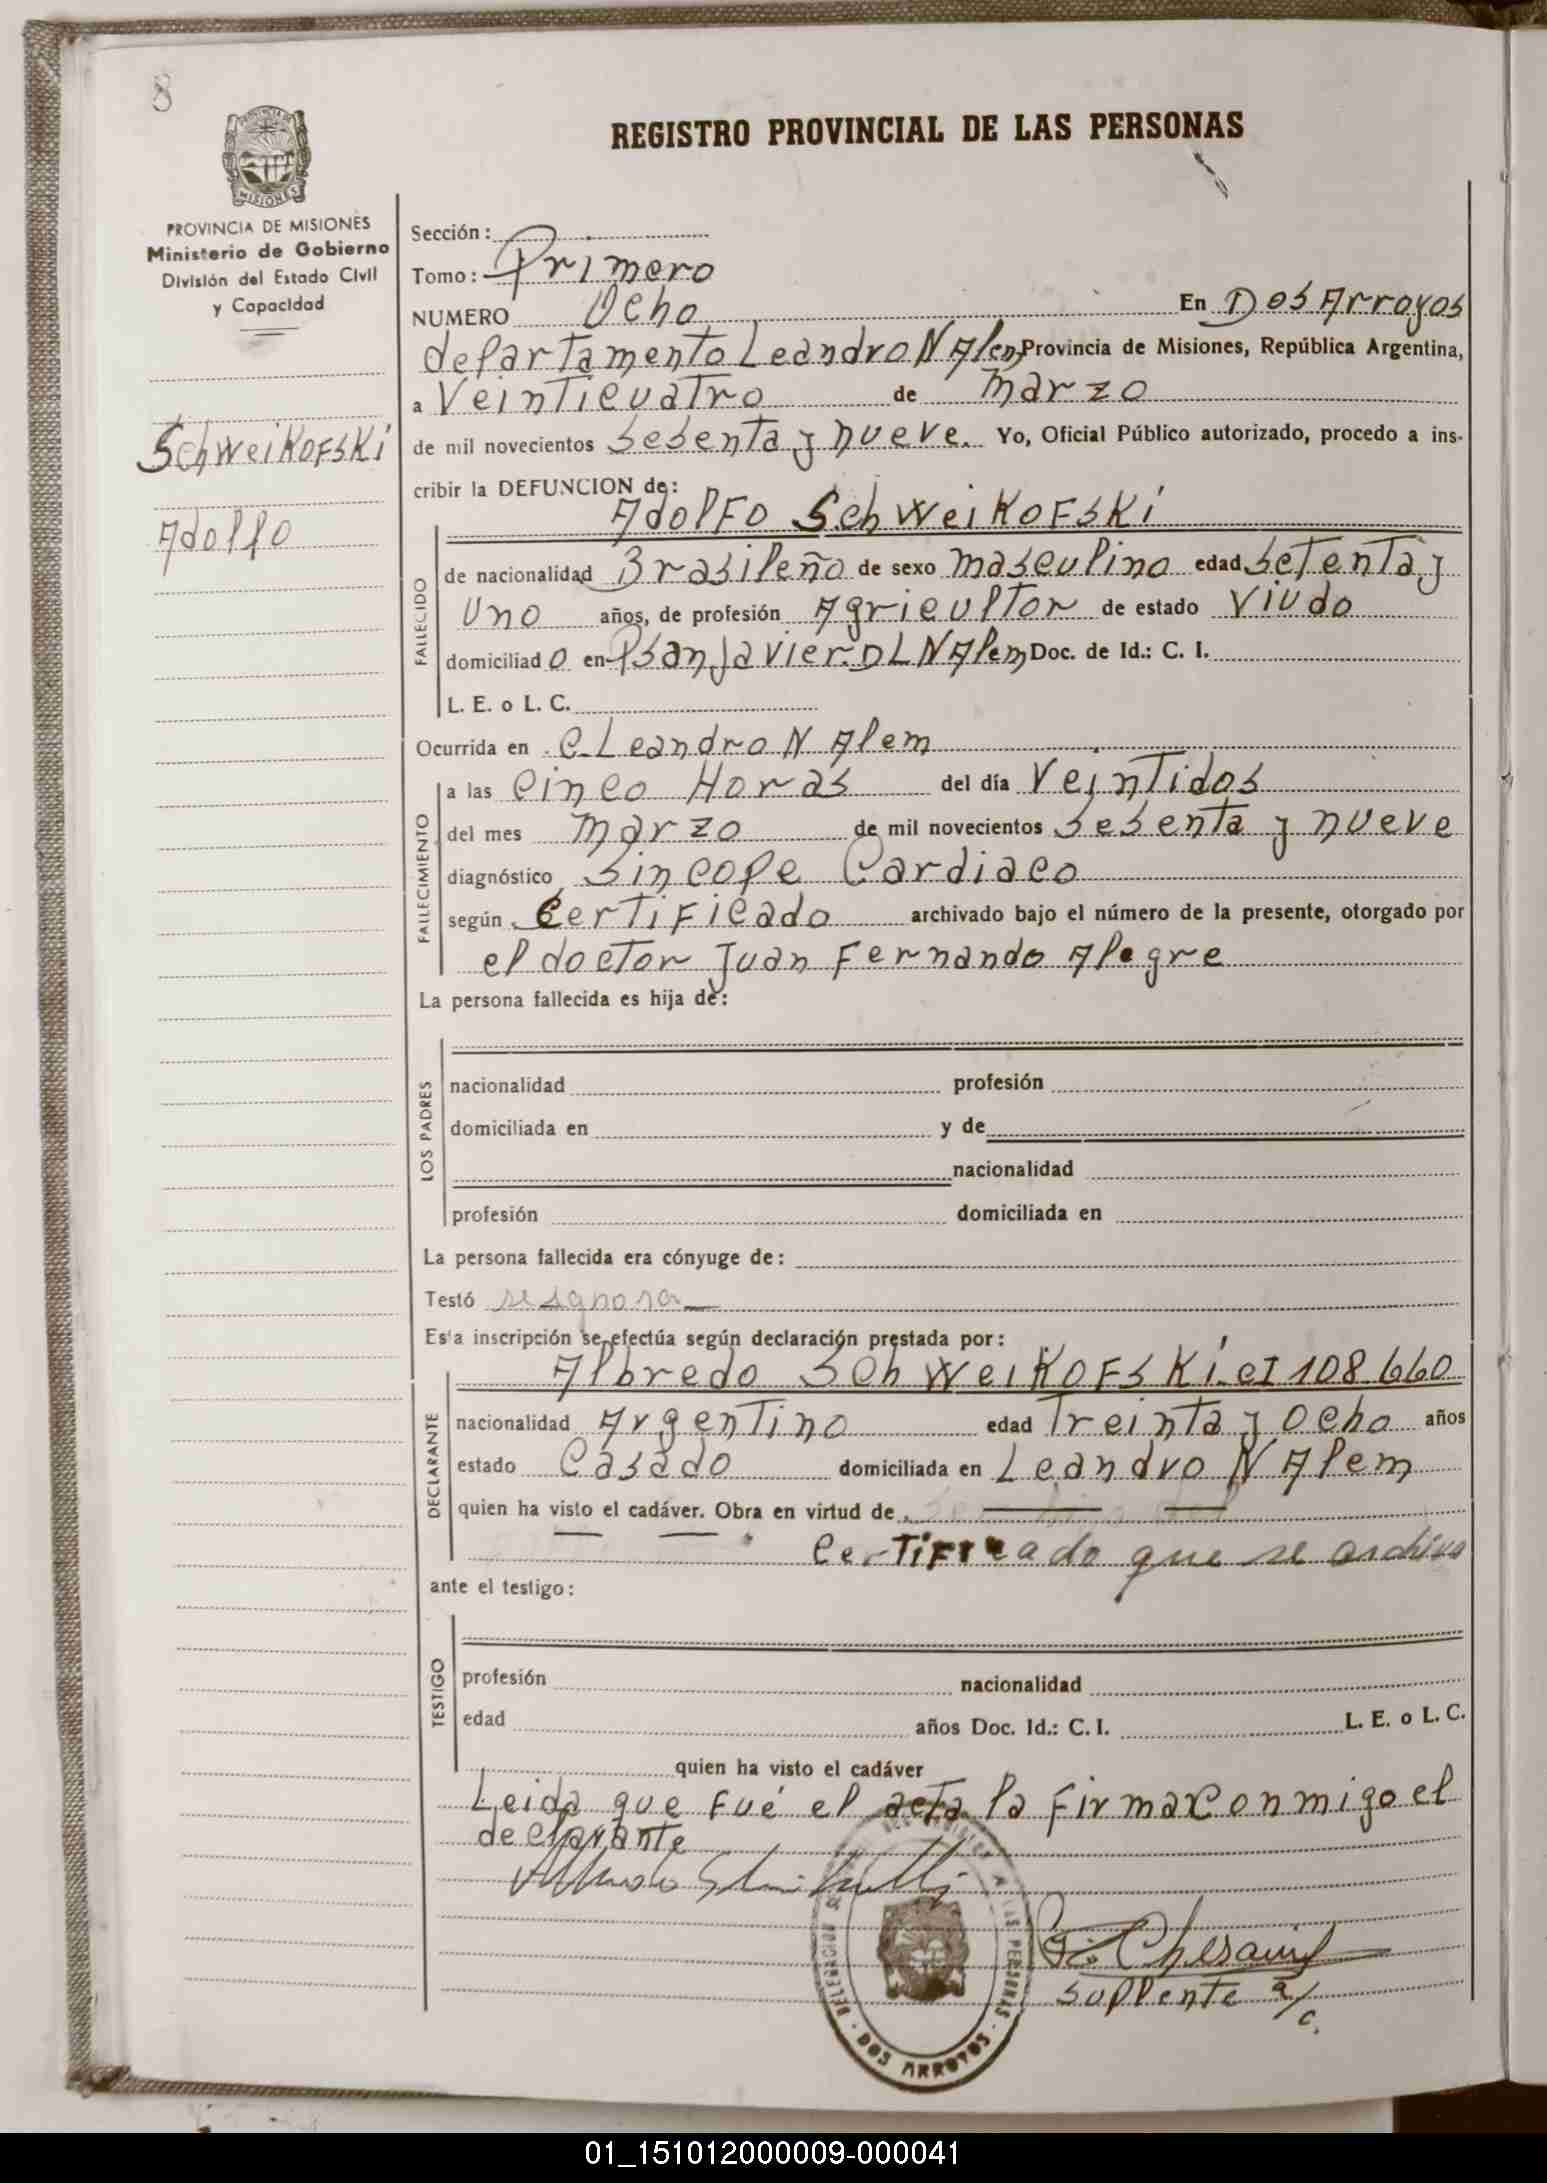 8
REGISTRO PROVINCIAL DE LAS PERSONAS
MISIONES
PROVINCIA DE MISIONES
Ministerio de Gobierno
División del Estado Civil
y Capacidad
SchweiKoFsKi
Adolfo
Sección:
Tomo: Primero
NUMERO Ocho En Dos Arroyos
departamento Leandro N Alem Provincia de Misiones, República Argentina,
a Veinticuatro de marzo
de mil novecientos sesenta y nueve. Yo, Oficial Público autorizado, procedo a ins-
cribir la DEFUNCION de:
AdolFo SchweiKoFsKi
FALLECIDO
de nacionalidad Brasileño de sexo masculino edad setenta y
uno años, de profesión Agricultor de estado Viudo
domiciliado en PSan Javier. DLNAlem Doc. de Id.: C. I.
L. E. o L. C.
Ocurrida en C. Leandro N Alem
FALLECIMIENTO
a las cinco Horas del día Veintidos
del mes marzo de mil novecientos sesenta y nueve
diagnóstico Sincope Cardiaco
según CertiFicado archivado bajo el número de la presente, otorgado por
el doctor Juan Fernando Alegre
La persona fallecida es hija de:
LOS PADRES
nacionalidad profesión
domiciliada en y de
nacionalidad
profesión domiciliada en
La persona fallecida era cónyuge de:
Testó se ignora
Esta inscripción se efectúa según declaración prestada por:
DECLARANTE
Albredo SchweiKoFsKi. CI 108660
nacionalidad Argentino edad Treinta y ocho años
estado Casado domiciliada en Leandro N Alem
quien ha visto el cadáver. Obra en virtud de
CertiFicado que se archiva
ante el testigo:
TESTIGO
profesión nacionalidad
edad años Doc. Id.: C. I. L. E. o L. C.
quien ha visto el cadáver
Leida que fué el acta la Firma Conmigo el
declarante
suplente a/c.
DOS ARROYOS
01_151012000009-000041